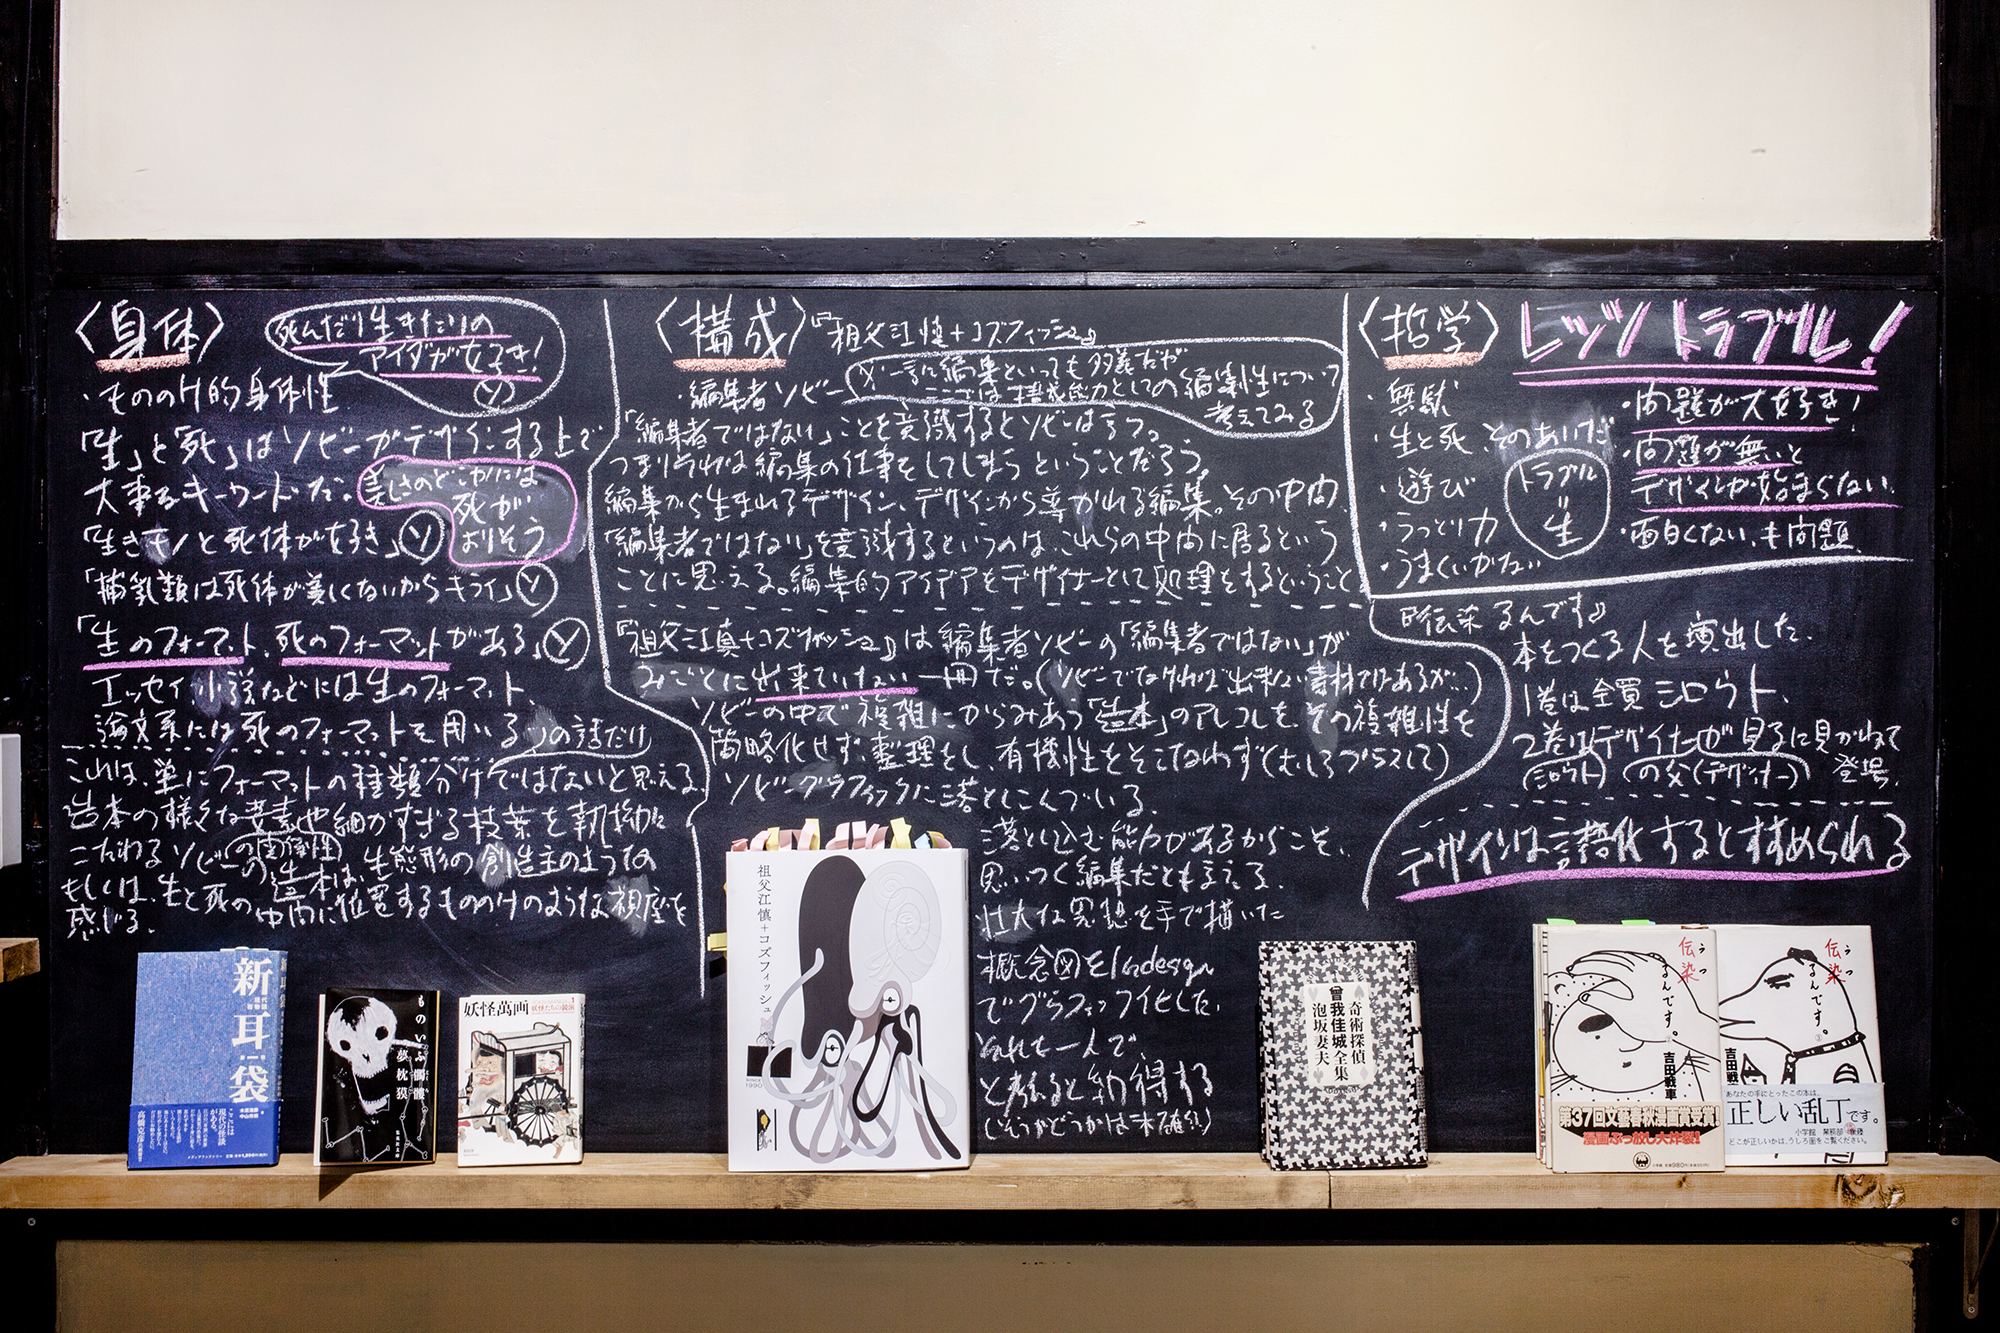 〈身体〉
死んだり生きたりの
アイダが好き!
ソ
・もののけ的身体性
「生」と「死」はソビーがデザインする上で
大事なキーワードだ。
美しさのどこかには
死が
ありそう
「生きモノと死体が好き」ソ
「哺乳類は死体が美しくないからキライ」ソ
「生のフォーマット、死のフォーマットがある」ソ
エッセイ、小説などには生のフォーマット、
論文系には死のフォーマットを用いる
の話だけ
これは、単にフォーマットの種類分けではないと思える。
造本の様々な要素や細かすぎる枝葉を執拗に
の関係性
こだわるソビーの造本は、生態形の創造主のような
もしくは、生と死の中間に位置するもののけのような視座を
感じる。
〈構成〉『祖父江慎+コズフィッシュ』
・編集者ソビー
一言に編集といっても多義だが
ここでは構成能力としての編集性について
考えてみる
「編集者ではない」ことを意識するとソビーは言う。
つまり行為は編集の仕事をしてしまうということだろう。
編集から生まれるデザイン、デザインから導かれる編集。その中間
「編集者ではない」を意識するというのは、これらの中間に居るという
ことに思える。編集的アイデアをデザイナーとして処理をするということ
『祖父江真+コズフィッシュ』は編集者ソビーの「編集者ではない」が
みごとに出来ていない一冊だ。(ソビーでなければ出来ない素材ではあるが…)
ソビーの中で複雑にからみあう「造本」のアレコレを、その複雑性を
簡略化せず、整理をし、有機性をそこなわず(むしろプラスして)
ソビーグラフィックに落としこんでいる。
落とし込む能力があるからこそ、
思いつく編集だとも言える。
壮大な思想を手で描いた
概念図をIndesign
でグラフィック化した、
それも一人で、
と考えると納得する
(そうかどうかは未確認)
〈哲学〉
レッツトラブル!
・無駄
・生と死、そのあいだ
・遊び
・うっとり力
・うまくいかない
トラブル
=
生
・問題が大好き!
・問題が無いと
デザインが始まらない。
・面白くない、も問題
『伝染るんです』
本をつくる人を演出した、
1巻は全員シロウト、
2巻はデザイナーが見るに見かねて
(シロウト)の父(デザイナー)
登場。
デザインは言語化するとすすめられる
新耳袋
現代百物語
第一夜
木原浩勝
中山市朗
ここには
現代の怪談
がある。
高橋克彦
メディアファクトリー
定価:1,260円
ものいふ髑髏
夢枕獏
集英社文庫
妖怪萬画
1
妖怪たちの競演
祖父江慎+コズフィッシュ
SINCE
1990
奇術探偵
曾我佳城全集
泡坂妻夫
伝染るんです。
うつ
吉田戦車
第37回文藝春秋漫画賞受賞!
漫画ぶっ放し大炸裂!
小学館 定価980円
伝染るんです。
うつ
③
吉田戦車
あなたの手にとったこの本は、
正しい乱丁です。
小学館 業務部 後藤
どこが正しいかは、うしろ面をご覧ください。